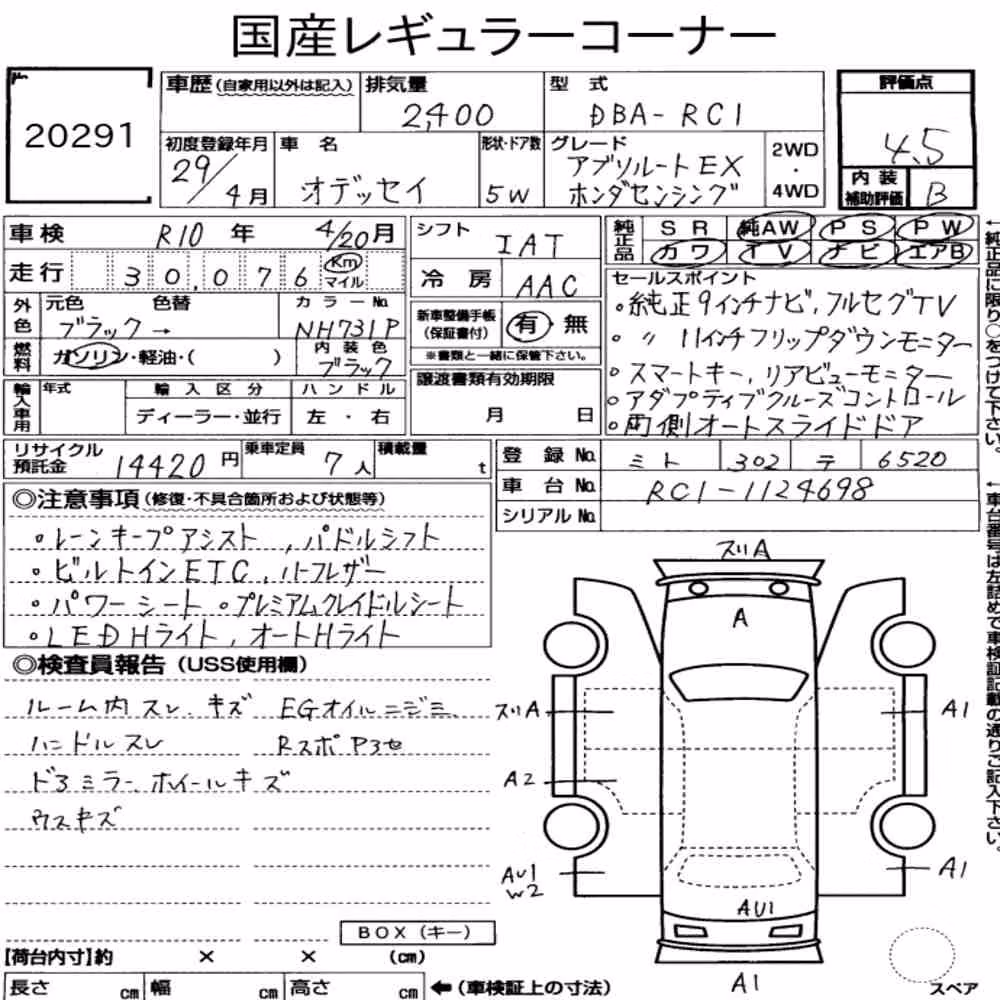 国産レギュラーコーナー
20291
車歴(自家用以外は記入) 排気量 2,400 型式 DBA-RC1
評価点 4.5
初度登録年月 29/4月 車名 オデッセイ 形状・ドア数 5W グレード アブソルートEX ホンダセンシング 2WD・4WD
内装補助評価 B
車検 R10年 4/20月 シフト IAT
純正品 SR 純AW PS PW
カワ TV ナビ エアB
走行 30,076 Km マイル 冷房 AAC
外色 元色 色替 カラーNo.
ブラック→ NH731P
燃料 ガソリン・軽油・( ) 内装色 ブラック
新車整備手帳(保証書付) 有・無
※書類と一緒に保管下さい。
輸入車用 年式 輸入区分 ハンドル
ディーラー・並行 左・右
譲渡書類有効期限
月 日
セールスポイント
・純正9インチナビ,フルセグTV
・〃 11インチフリップダウンモニター
・スマートキー,リアビューモニター
・アダプティブクルーズコントロール
・両側オートスライドドア
←純正品に限り○をつけて下さい。
リサイクル預託金 14420円 乗車定員 7人 積載量 t
登録No. ミト 302 テ 6520
車台No. RC1-1124698
シリアルNo.
←車台番号は左詰めで車検証記載の通りご記入下さい。
◎注意事項(修復・不具合箇所および状態等)
・レーンキープアシスト,パドルシフト
・ビルトインETC,ハーフレザー
・パワーシート・プレミアムクレイドルシート
・LEDHライト,オートHライト
◎検査員報告(USS使用欄)
ルーム内スレ、キズ EGオイルニジミ
ハンドルスレ Rスポ
ドアミラー、ホイールキズ
ウスキズ
スリA
A
スリA
A1
A2
AU1
W2
A1
AU1
A1
BOX(キー)
【荷台内寸】約 × × (cm)
長さ cm 幅 cm 高さ cm ←(車検証上の寸法)
スペア